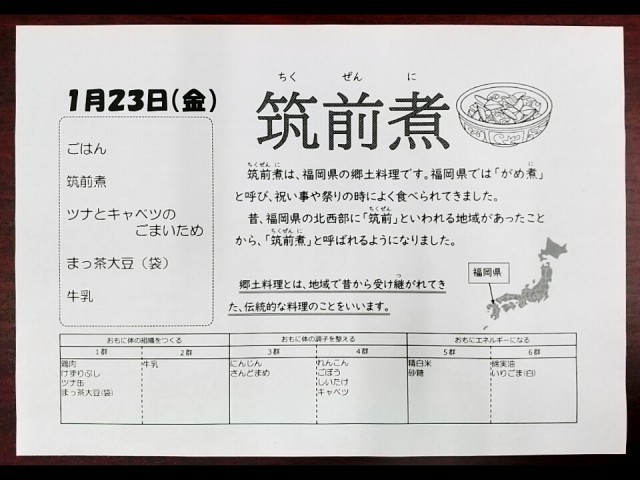 1月23日(金)
ごはん
筑前煮
ツナとキャベツの
ごまいため
まっ茶大豆(袋)
牛乳
ちく ぜん に
筑前煮
筑前煮は、福岡県の郷土料理です。福岡県では「がめ煮」
ちくぜん に に
と呼び、祝い事や祭りの時によく食べられてきました。
ちくぜん
昔、福岡県の北西部に「筑前」といわれる地域があったこと
ちくぜん に
から、「筑前煮」と呼ばれるようになりました。
福岡県
つ
郷土料理とは、地域で昔から受け継がれてき
た、伝統的な料理のことをいいます。
おもに体の組織をつくる おもに体の調子を整える おもにエネルギーになる
1群 2群 3群 4群 5群 6群
鶏肉 牛乳 にんじん れんこん 精白米 綿実油
けずりぶし さんどまめ ごぼう 砂糖 いりごま(白)
ツナ缶 しいたけ
まっ茶大豆(袋) キャベツ